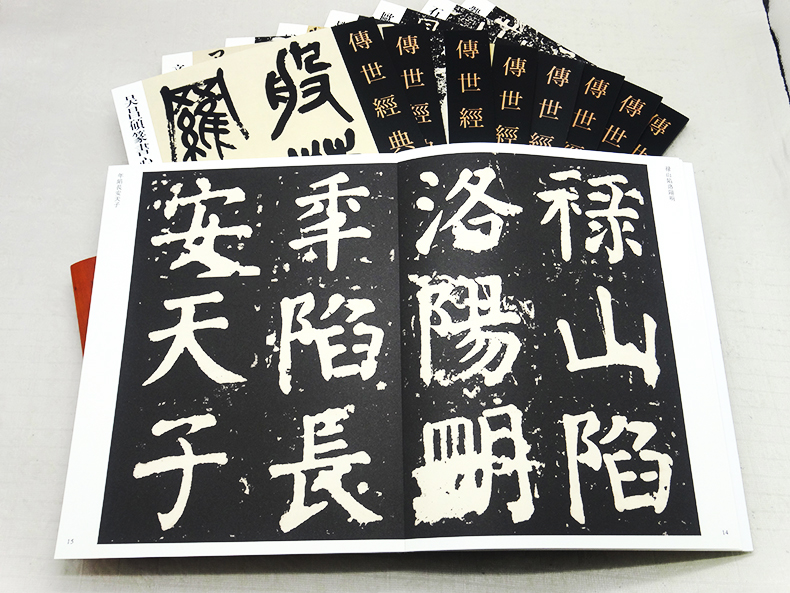 吴昌碩篆書
傳世經典
傳世經典
傳世經
傳世經
傳世經
傳世經
傳世
傳世
禄山陷洛陽明
禄山陷
洛陽明
年陷長
安天子
年陷長安天子
14
15